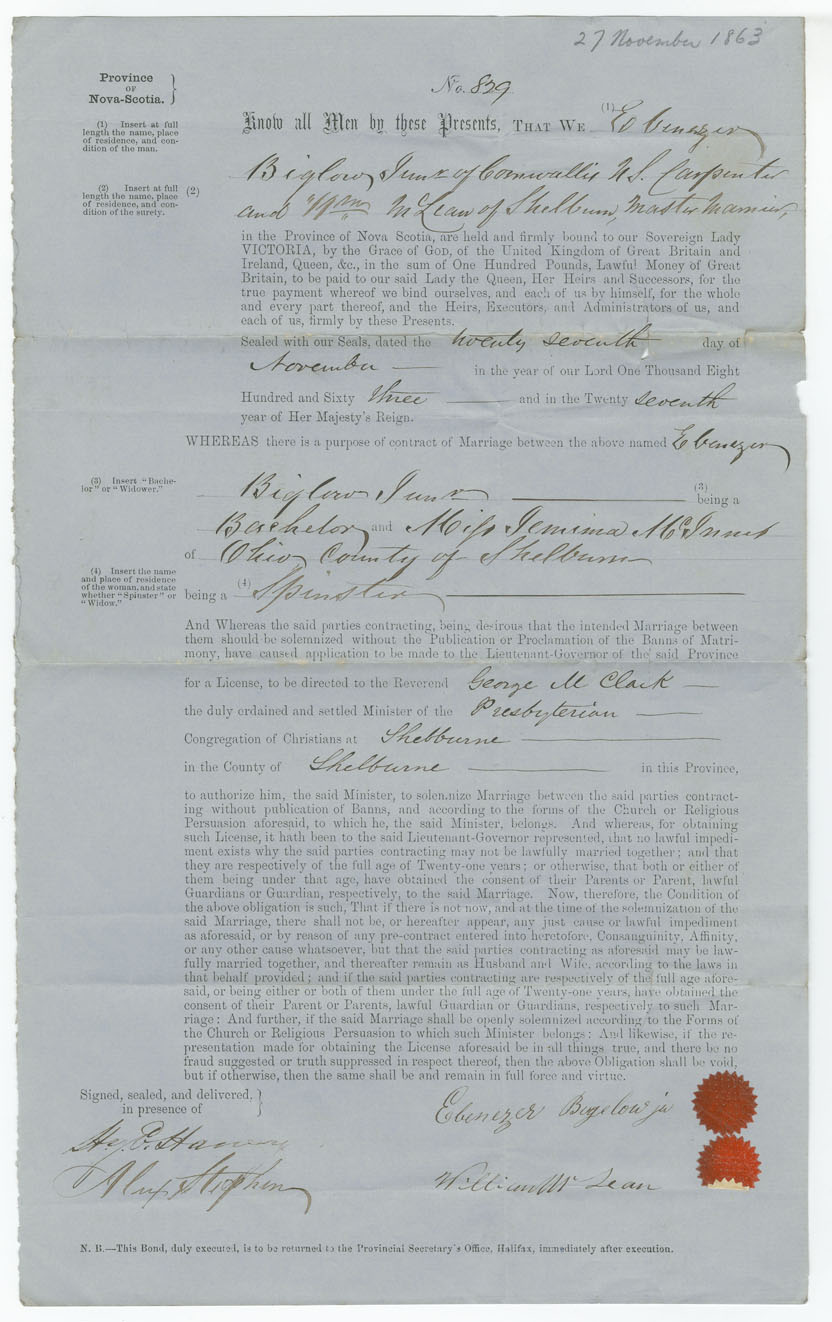 27 November 1863
Province
OF
Nova-Scotia.
No. 829
(1) Insert at full
length the name, place
of residence, and con-
dition of the man.
Know all Men by these Presents, THAT WE (1) Ebenezer
(2) Insert at full
length the name, place
of residence, and con-
dition of the surety.
Biglow Junr of Cornwallis N.S. Carpenter
(2) and Wm McLean of Shelburn, Master Marrier,
in the Province of Nova Scotia, are held and firmly bound to our Sovereign Lady
VICTORIA, by the Grace of GOD, of the United Kingdom of Great Britain and
Ireland, Queen, &c., in the sum of One Hundred Pounds, Lawful Money of Great
Britain, to be paid to our said Lady the Queen, Her Heirs and Successors, for the
true payment whereof we bind ourselves, and each of us by himself, for the whole
and every part thereof, and the Heirs, Executors, and Administrators of us, and
each of us, firmly by these Presents.
Sealed with our Seals, dated the twenty seventh day of
November — in the year of our Lord One Thousand Eight
Hundred and Sixty three — and in the Twenty seventh
year of Her Majesty's Reign.
WHEREAS there is a purpose of contract of Marriage between the above named Ebenezer
(3) Insert "Bache-
lor" or "Widower."
Biglow Junr — (3) being a
Bachelor and Miss Jemima McInnes
of Ohio County of Shelburn
(4) Insert the name
and place of residence
of the woman, and state
whether "Spinster" or
"Widow."
being a (4) Spinster —
And Whereas the said parties contracting, being desirous that the intended Marriage between
them should be solemnized without the Publication or Proclamation of the Banns of Matri-
mony, have caused application to be made to the Lieutenant-Governor of the said Province
for a License, to be directed to the Reverend George M Clark —
the duly ordained and settled Minister of the Presbyterian —
Congregation of Christians at Shelburne —
in the County of Shelburne — in this Province,
to authorize him, the said Minister, to solemnize Marriage between the said parties contract-
ing without publication of Banns, and according to the forms of the Church or Religious
Persuasion aforesaid, to which he, the said Minister, belongs. And whereas, for obtaining
such License, it hath been to the said Lieutenant-Governor represented, that no lawful impedi-
ment exists why the said parties contracting may not be lawfully married together; and that
they are respectively of the full age of Twenty-one years; or otherwise, that both or either of
them being under that age, have obtained the consent of their Parents or Parent, lawful
Guardians or Guardian, respectively, to the said Marriage. Now, therefore, the Condition of
the above obligation is such, That if there is not now, and at the time of the solemnization of the
said Marriage, there shall not be, or hereafter appear, any just cause or lawful impediment
as aforesaid, or by reason of any pre-contract entered into heretofore, Consanguinity, Affinity,
or any other cause whatsoever, but that the said parties contracting as aforesaid may be law-
fully married together, and thereafter remain as Husband and Wife, according to the laws in
that behalf provided; and if the said parties contracting are respectively of the full age afore-
said, or being either or both of them under the full age of Twenty-one years, have obtained the
consent of their Parent or Parents, lawful Guardian or Guardians, respectively to such Mar-
riage: And further, if the said Marriage shall be openly solemnized according to the Forms of
the Church or Religious Persuasion to which such Minister belongs: And likewise, if the re-
presentation made for obtaining the License aforesaid be in all things true, and there be no
fraud suggested or truth suppressed in respect thereof, then the above Obligation shall be void,
but if otherwise, then the same shall be and remain in full force and virtue.
Signed, sealed, and delivered,
in presence of
Ebenezer Bigelow jr
Alex Stephen
William McLean
N. B.—This Bond, duly executed, is to be returned to the Provincial Secretary's Office, Halifax, immediately after execution.